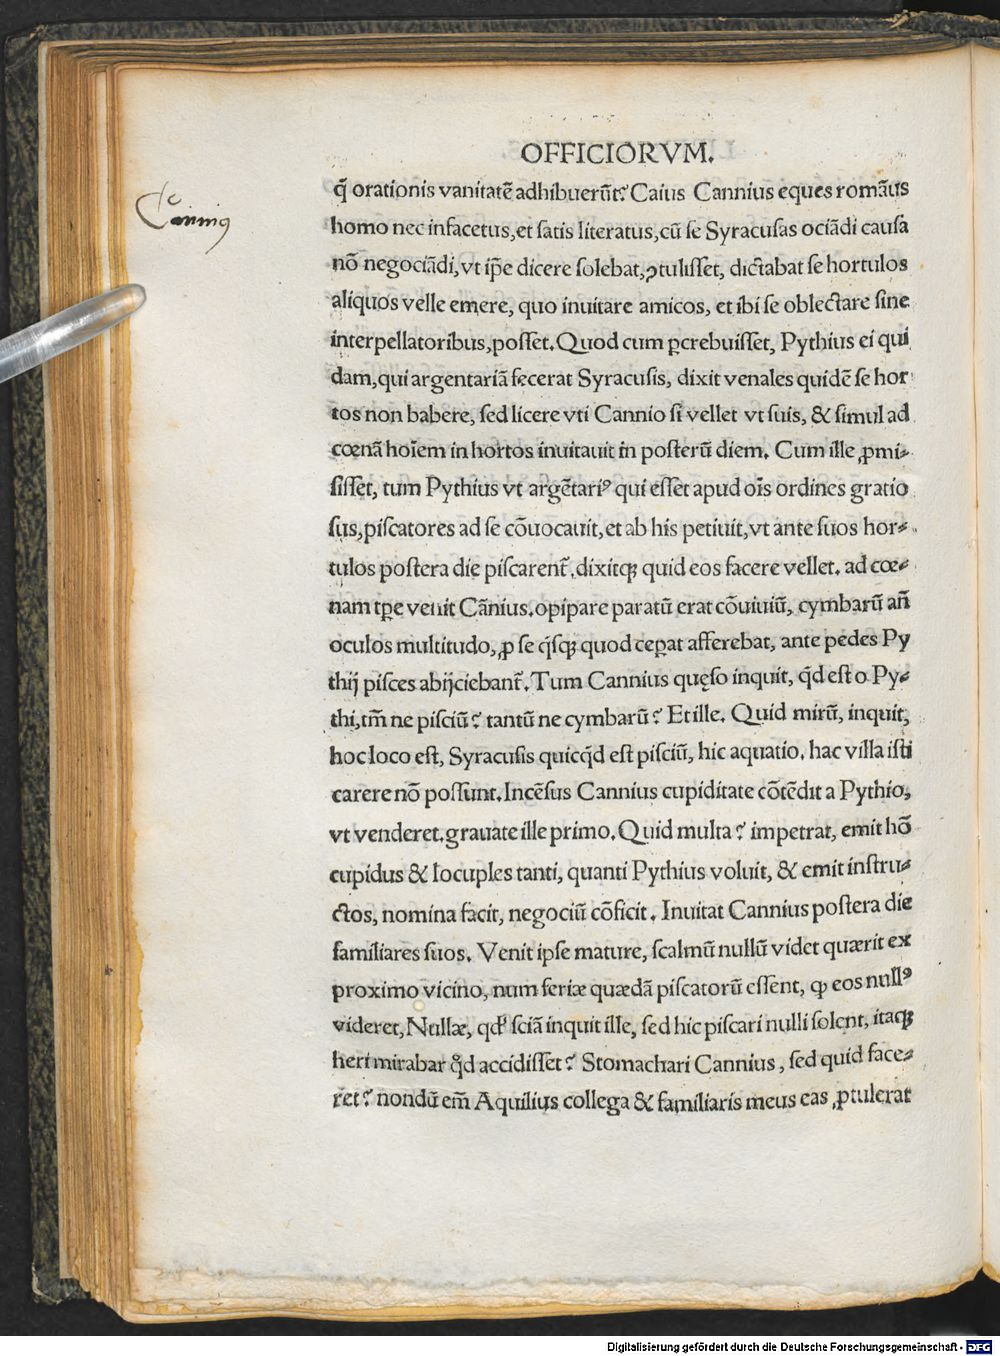 OFFICIORVM.
q̃ orationis vanitatẽ adhibuerũt? Caius Cannius eques romãus
Cannius
homo nec infacetus, et satis literatus, cũ se Syracusas ociãdi causa
nõ negociãdi, vt ip̃e dicere solebat, ꝯtulisset, dictabat se hortulos
aliquos velle emere, quo inuitare amicos, et ibi se oblectare sine
interpellatoribus, posset. Quod cum ꝑcrebuisset, Pythius ei qui
dam, qui argentariã fecerat Syracusis, dixit venales quidẽ se hor
tos non babere, sed licere vti Cannio si vellet vt suis, & simul ad
cœnã hoĩem in hortos inuitauit in posterũ diem. Cum ille ꝓmi-
sisset, tum Pythius vt argẽtariꝰ qui esset apud oĩs ordines gratio
sus, piscatores ad se cõuocauit, et ab his petiuit, vt ante suos hor-
tulos postera die piscarent᷑, dixitqꝫ quid eos facere vellet. ad cœ-
nam tꝑe venit Cãnius. opipare paratũ erat cõuiuiũ, cymbarũ añ
oculos multitudo, ꝓ se q̃sqꝫ quod ceꝑat afferebat, ante pedes Py
thij pisces abijciebant᷑. Tum Cannius quęso inquit, q̃d est o Py-
thi, tm̃ ne pisciũ? tantũ ne cymbarũ? Et ille. Quid mirũ, inquit,
hoc loco est, Syracusis quicq̃d est pisciũ, hic aquatio. hac villa isti
carere nõ possunt. Incẽsus Cannius cupiditate cõtẽdit a Pythio,
vt venderet. grauate ille primo. Quid multa? impetrat, emit hõ
cupidus & locuples tanti, quanti Pythius voluit, & emit instru-
ctos, nomina facit, negociũ cõficit. Inuitat Cannius postera die
familiares suos. Venit ipse mature, scalmũ nullũ videt quærit ex
proximo vicino, num feriæ quædã piscatorũ essent, ꝙ eos nullꝰ
videret, Nullæ, qd' sciã inquit ille, sed hic piscari nulli solent, itaqꝫ
heri mirabar q̊d accidisset? Stomachari Cannius, sed quid face-
ret? nondũ em̃ Aquilius collega & familiaris meus eas ꝓtulerat
Digitalisierung gefördert durch die Deutsche Forschungsgemeinschaft - DFG